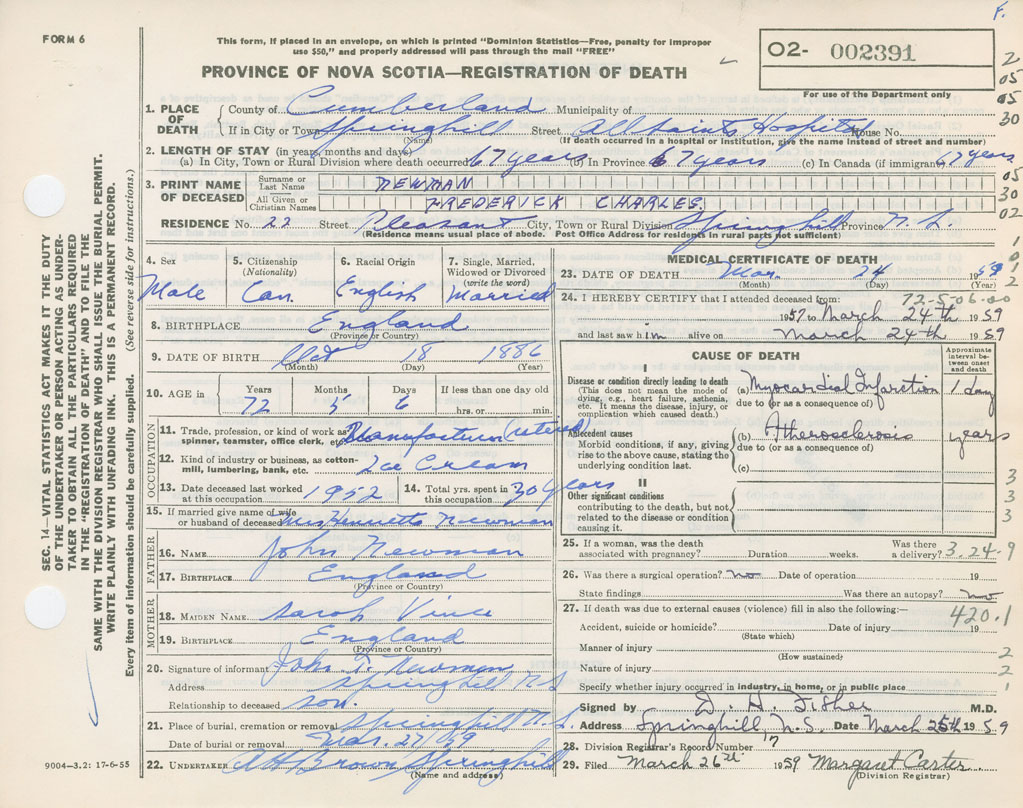 F.
FORM 6
This form, if placed in an envelope, on which is printed "Dominion Statistics—Free, penalty for improper
use $50," and properly addressed will pass through the mail "FREE"
PROVINCE OF NOVA SCOTIA—REGISTRATION OF DEATH
02- 002391
For use of the Department only
2
05
05
30
1. PLACE OF DEATH County of Cumberland Municipality of
If in City or Town Springhill Street All Saints Hospital House No.
(Name) (If death occurred in a hospital or institution, give the name instead of street and number)
2. LENGTH OF STAY (in years, months and days)
(a) In City, Town or Rural Division where death occurred 67 years (b) In Province 67 years (c) In Canada (if immigrant) 67 years
3. PRINT NAME OF DECEASED Surname or Last Name NEWMAN
All Given or Christian Names FREDERICK CHARLES
05
30
02
RESIDENCE No. 22 Street Pleasant City, Town or Rural Division Springhill Province N.S.
(Residence means usual place of abode. Post Office Address for residents in rural parts not sufficient)
1
0
1
2
4. Sex Male
5. Citizenship (Nationality) Can.
6. Racial Origin English
7. Single, Married, Widowed or Divorced (write the word) Married
8. BIRTHPLACE England
(Province or Country)
9. DATE OF BIRTH Oct 18 1886
(Month) (Day) (Year)
10. AGE in Years Months Days If less than one day old
72 5 6 hrs. or min.
OCCUPATION
11. Trade, profession, or kind of work as spinner, teamster, office clerk, etc. Manufacturer (retired)
12. Kind of industry or business, as cotton-mill, lumbering, bank, etc. Ice Cream
13. Date deceased last worked at this occupation 1952
14. Total yrs. spent in this occupation 30 years
15. If married give name of wife or husband of deceased Mrs Henrietta Newman
FATHER
16. NAME John Newman
17. BIRTHPLACE England
(Province or Country)
MOTHER
18. MAIDEN NAME Sarah Vince
19. BIRTHPLACE England
(Province or Country)
20. Signature of informant John T. Newman
Address Springhill N.S
Relationship to deceased son.
21. Place of burial, cremation or removal Springhill N.S.
Date of burial or removal Mar. 27/59
22. UNDERTAKER A H Brown Springhill
(Name and address)
MEDICAL CERTIFICATE OF DEATH
23. DATE OF DEATH Mar. 24 1959
(Month) (Day) (Year)
24. I HEREBY CERTIFY that I attended deceased from: 72-5-06-00
1957 to March 24th 1959
and last saw him alive on March 24th 1959
CAUSE OF DEATH
Approximate interval between onset and death
I
Disease or condition directly leading to death
(This does not mean the mode of dying, e.g., heart failure, asthenia, etc. It means the disease, injury, or complication which caused death.)
(a) Myocardial Infarction 1 day
due to (or as a consequence of)
Antecedent causes
Morbid conditions, if any, giving rise to the above cause, stating the underlying condition last.
(b) Atherosclerosis years
due to (or as a consequence of)
(c)
II
Other significant conditions contributing to the death, but not related to the disease or condition causing it.
3
3
3
25. If a woman, was the death associated with pregnancy? Duration weeks. Was there a delivery? 3.24-9
26. Was there a surgical operation? no Date of operation 19
State findings Was there an autopsy? no
27. If death was due to external causes (violence) fill in also the following:—
420.1
Accident, suicide or homicide? Date of injury 19
(State which)
Manner of injury 2
(How sustained)
Nature of injury 2
Specify whether injury occurred in industry, in home, or in public place 1
Signed by D. H. Fisher M.D.
Address Springhill, N.S. Date March 25th 1959
28. Division Registrar's Record Number 17
29. Filed March 26th 1959 Margaret Carter
(Division Registrar)
SEC. 14—VITAL STATISTICS ACT MAKES IT THE DUTY
OF THE UNDERTAKER OR PERSON ACTING AS UNDER-
TAKER TO OBTAIN ALL THE PARTICULARS REQUIRED
IN THE "REGISTRATION OF DEATH" AND TO FILE THE
SAME WITH THE DIVISION REGISTRAR WHO SHALL ISSUE THE BURIAL PERMIT.
WRITE PLAINLY WITH UNFADING INK. THIS IS A PERMANENT RECORD.
Every item of information should be carefully supplied. (See reverse side for instructions.)
9004—3.2: 17-6-55